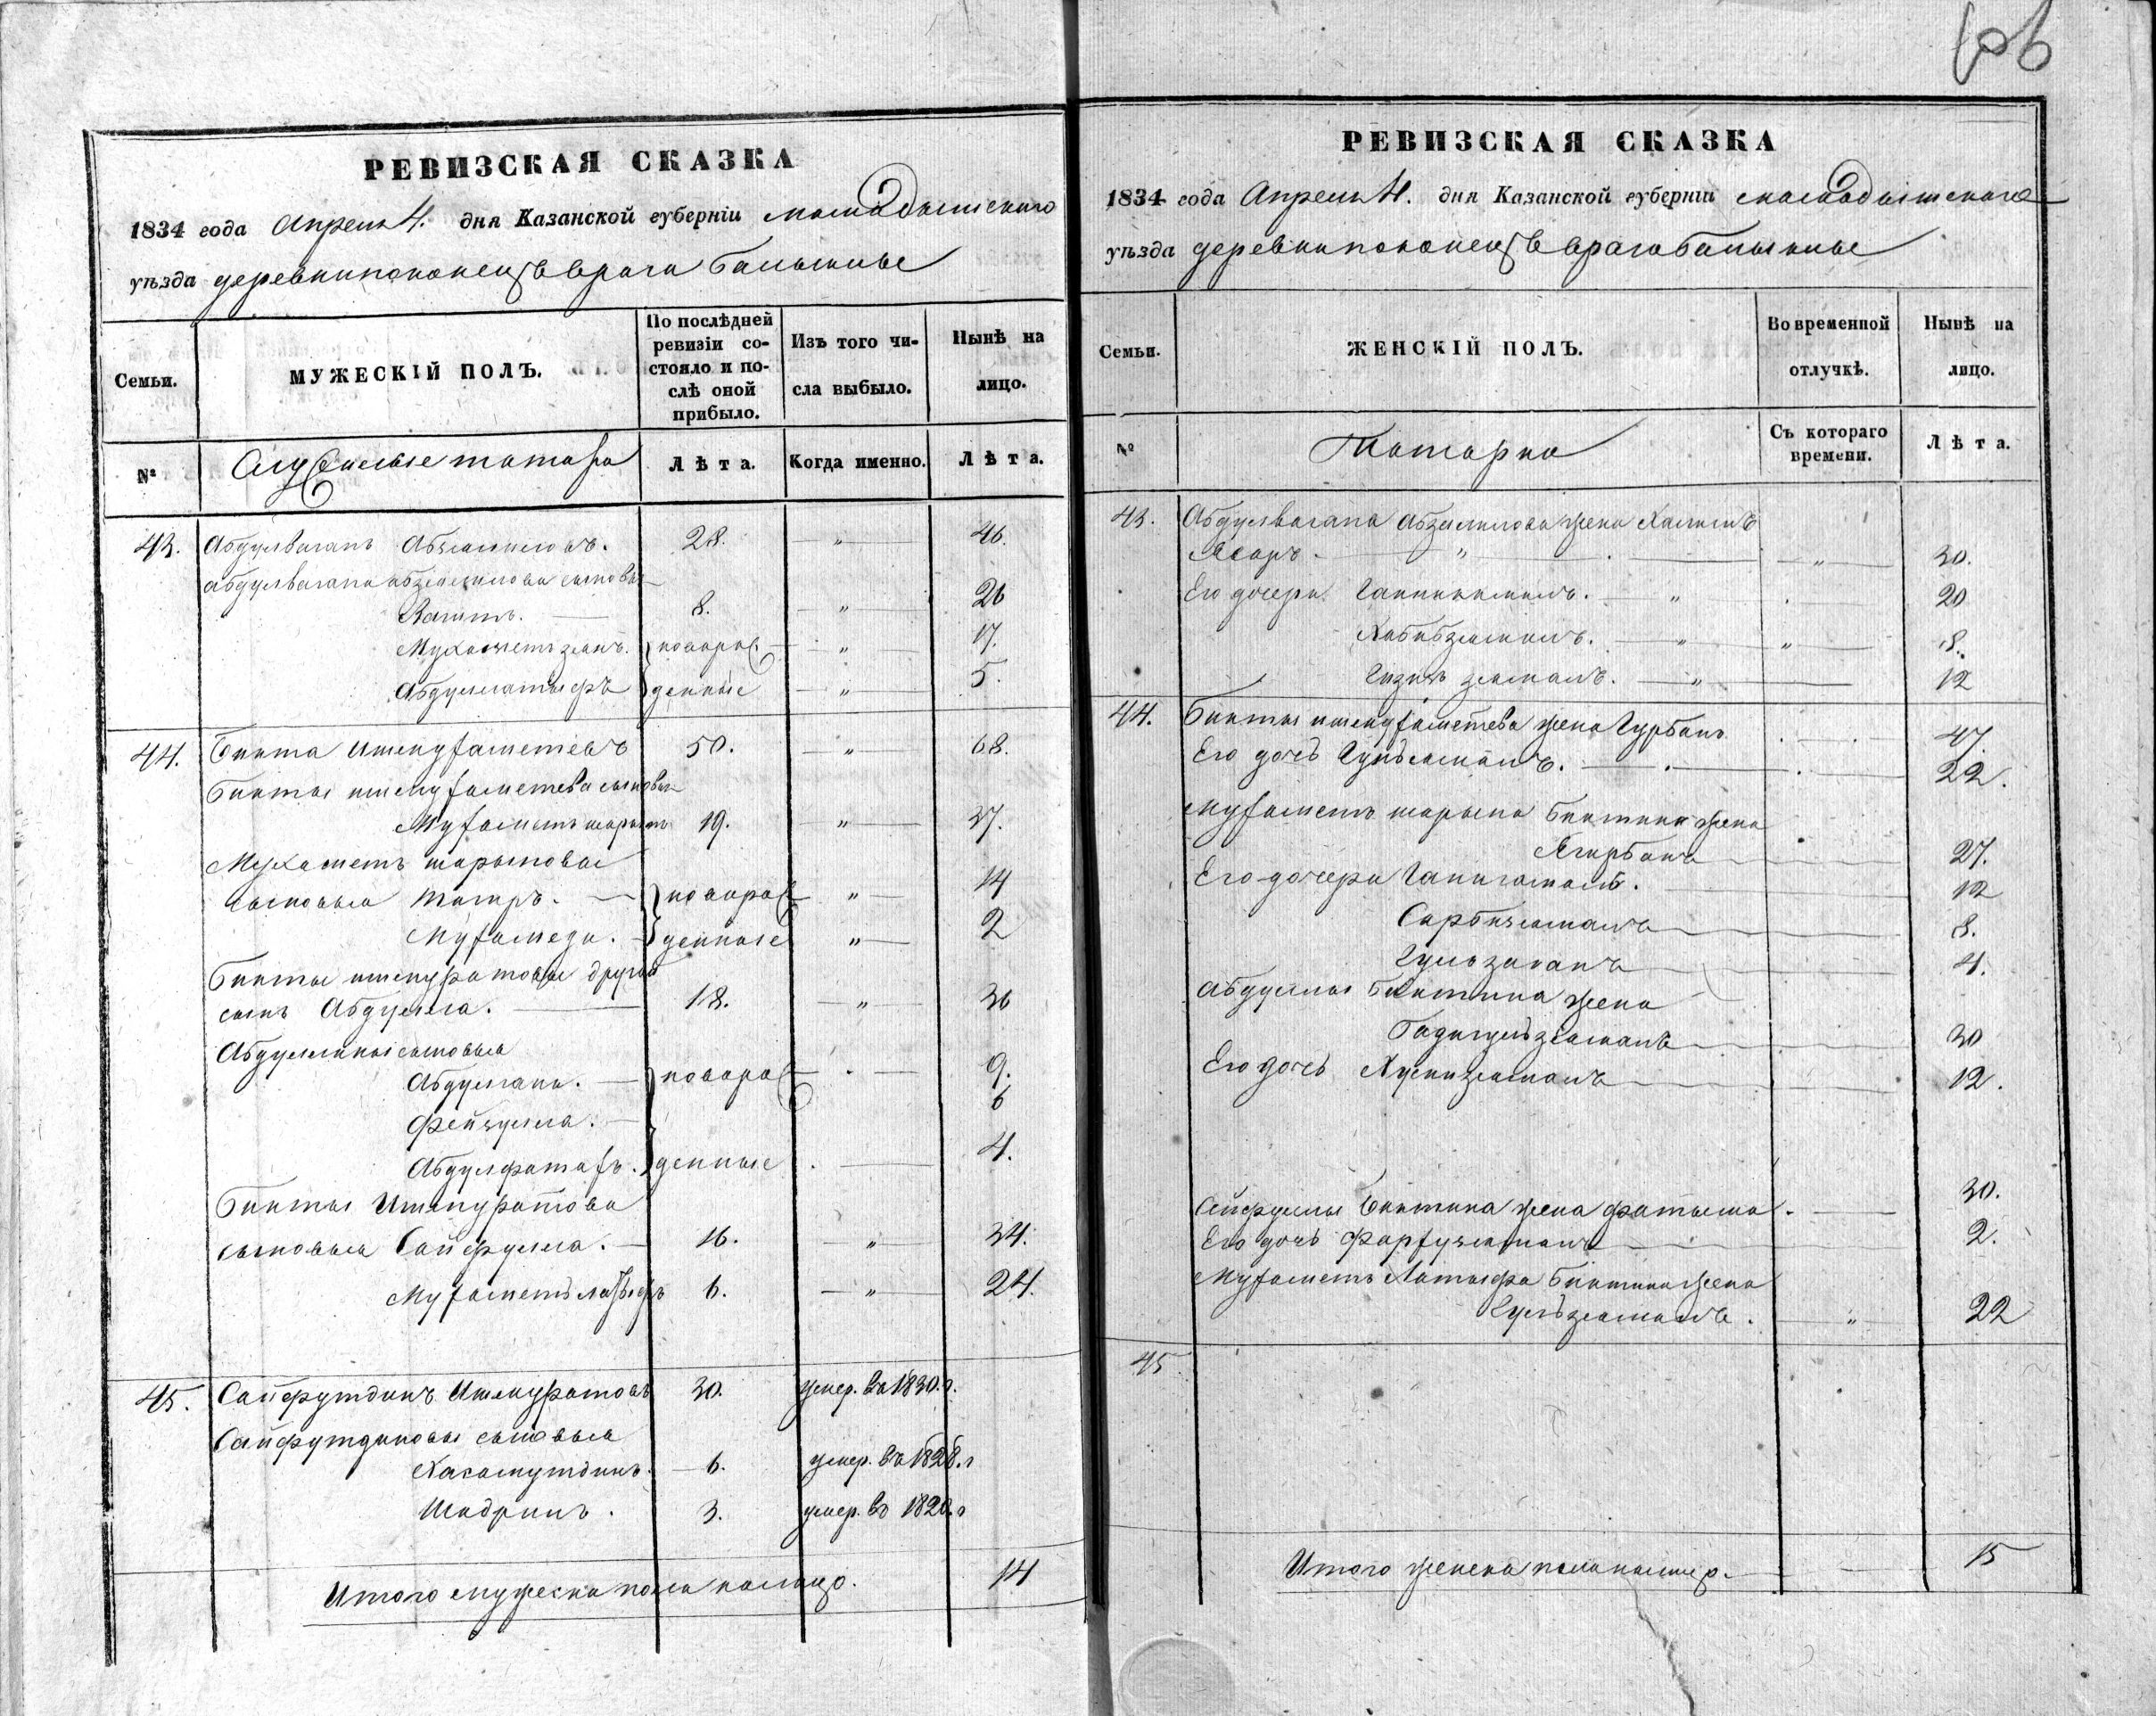 106
РЕВИЗСКАЯ СКАЗКА
1834 года Апреля 4. дня Казанской губерніи Мамадышскаго
уѣзда деревни поконецъ врага Балыклы
Семьи.
МУЖЕСКІЙ ПОЛЪ.
По послѣдней
ревизіи со-
стояло и по-
слѣ оной
прибыло.
Изъ того чи-
сла выбыло.
Нынѣ на
лицо.
№
Служилые татара
Лѣта.
Когда именно.
Лѣта.
43. Абдулваганъ Абзелиловъ. 28. — " — 46.
Абдулвагапа абзелилова сыновья
Вагитъ. 8. — " — 26
Мухаметзянъ. } новорож — " — 17.
Абдуллатыфъ } денные — " — 5.
44. Бикта Ишмухаметевъ 50. — " — 68.
Бикты ишмухаметева сыновья
Мухаметь шарыпъ 19. — " — 37.
Мухаметъ шарыповы
сыновья Тагиръ. — } новорож " — 14
Мухамеди. — } денные " — 2
Бикты ишмуратовы другой
сынъ Абдулла. — 18. — " — 36
Абдуллины сыновья
Абдулгани. — } новорож — . — 9.
Фейзулла. — 6
Абдулфатахъ. } денные . — 4.
Бикты Ишмуратова
сыновья Сайфулла. — 16. — " — 34.
Мухаметь латыфъ 6. — " — 24.
45. Сайфутдинъ Ишмуратовъ 30. умер. въ 1830. г.
Сайфутдиновы сыновья
Хасамутдинъ. — 6. умер. въ 1828. г
Шадринъ. 3. умер. въ 1820. г
Итого мужеска пола налицо. 14
РЕВИЗСКАЯ СКАЗКА
1834 года Апреля 4. дня Казанской губерніи Мамадышскаго
уѣзда деревни поконецъ врага Балыклы
Семьи.
ЖЕНСКІЙ ПОЛЪ.
Во временной
отлучкѣ.
Нынѣ на
лицо.
№
Татарки
Съ котораго
времени.
Лѣта.
43. Абдулвагапа Абзелилова жена
— " — . — " — 30.
Его дочери. — " . — 20
Хабибзямалъ. — " " — 18.
зямалъ. — " — 12
44. Бикты ишмухаметева жена Гурбанъ . — . 47.
Его дочь Гульзямалъ. — . — . — 22.
Мухаметь шарыпа Биктина жена
— 27.
Его дочери . — 12
Сарбизямалъ — 8.
— 4.
Абдуллы Биктина жена
Бадигульзямалъ — 30
Его дочь Хуснизямалъ — 12.
Сайфуллы Биктина жена Фатыма. — 30.
Его дочь — 2.
Мухаметь Латыфа Биктина жена
Гульзямалъ. — " — 22
45
Итого женска пола налицо. — — 15